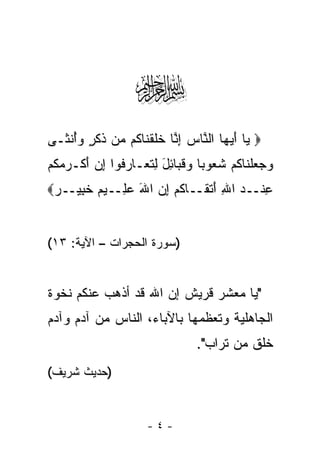 ﷽
﴿ يا أيها النَّاس إنَّا خلقناكم من ذكر وأُنثـى
وجعلناكم شعوبا وقبائِلَ لِتعـارفوا إن أكـرمكم
عِنــد اللهِ أتقــاكم إن اللهَ علِــيم خبيــر﴾
(سورة الحجرات – الآية: ١٣)
"يا معشر قريش إن الله قد أذهب عنكم نخوة
الجاهلية وتعظمها بالآباء، الناس من آدم وآدم
خلق من تراب".
(حديث شريف)
- ٤ -